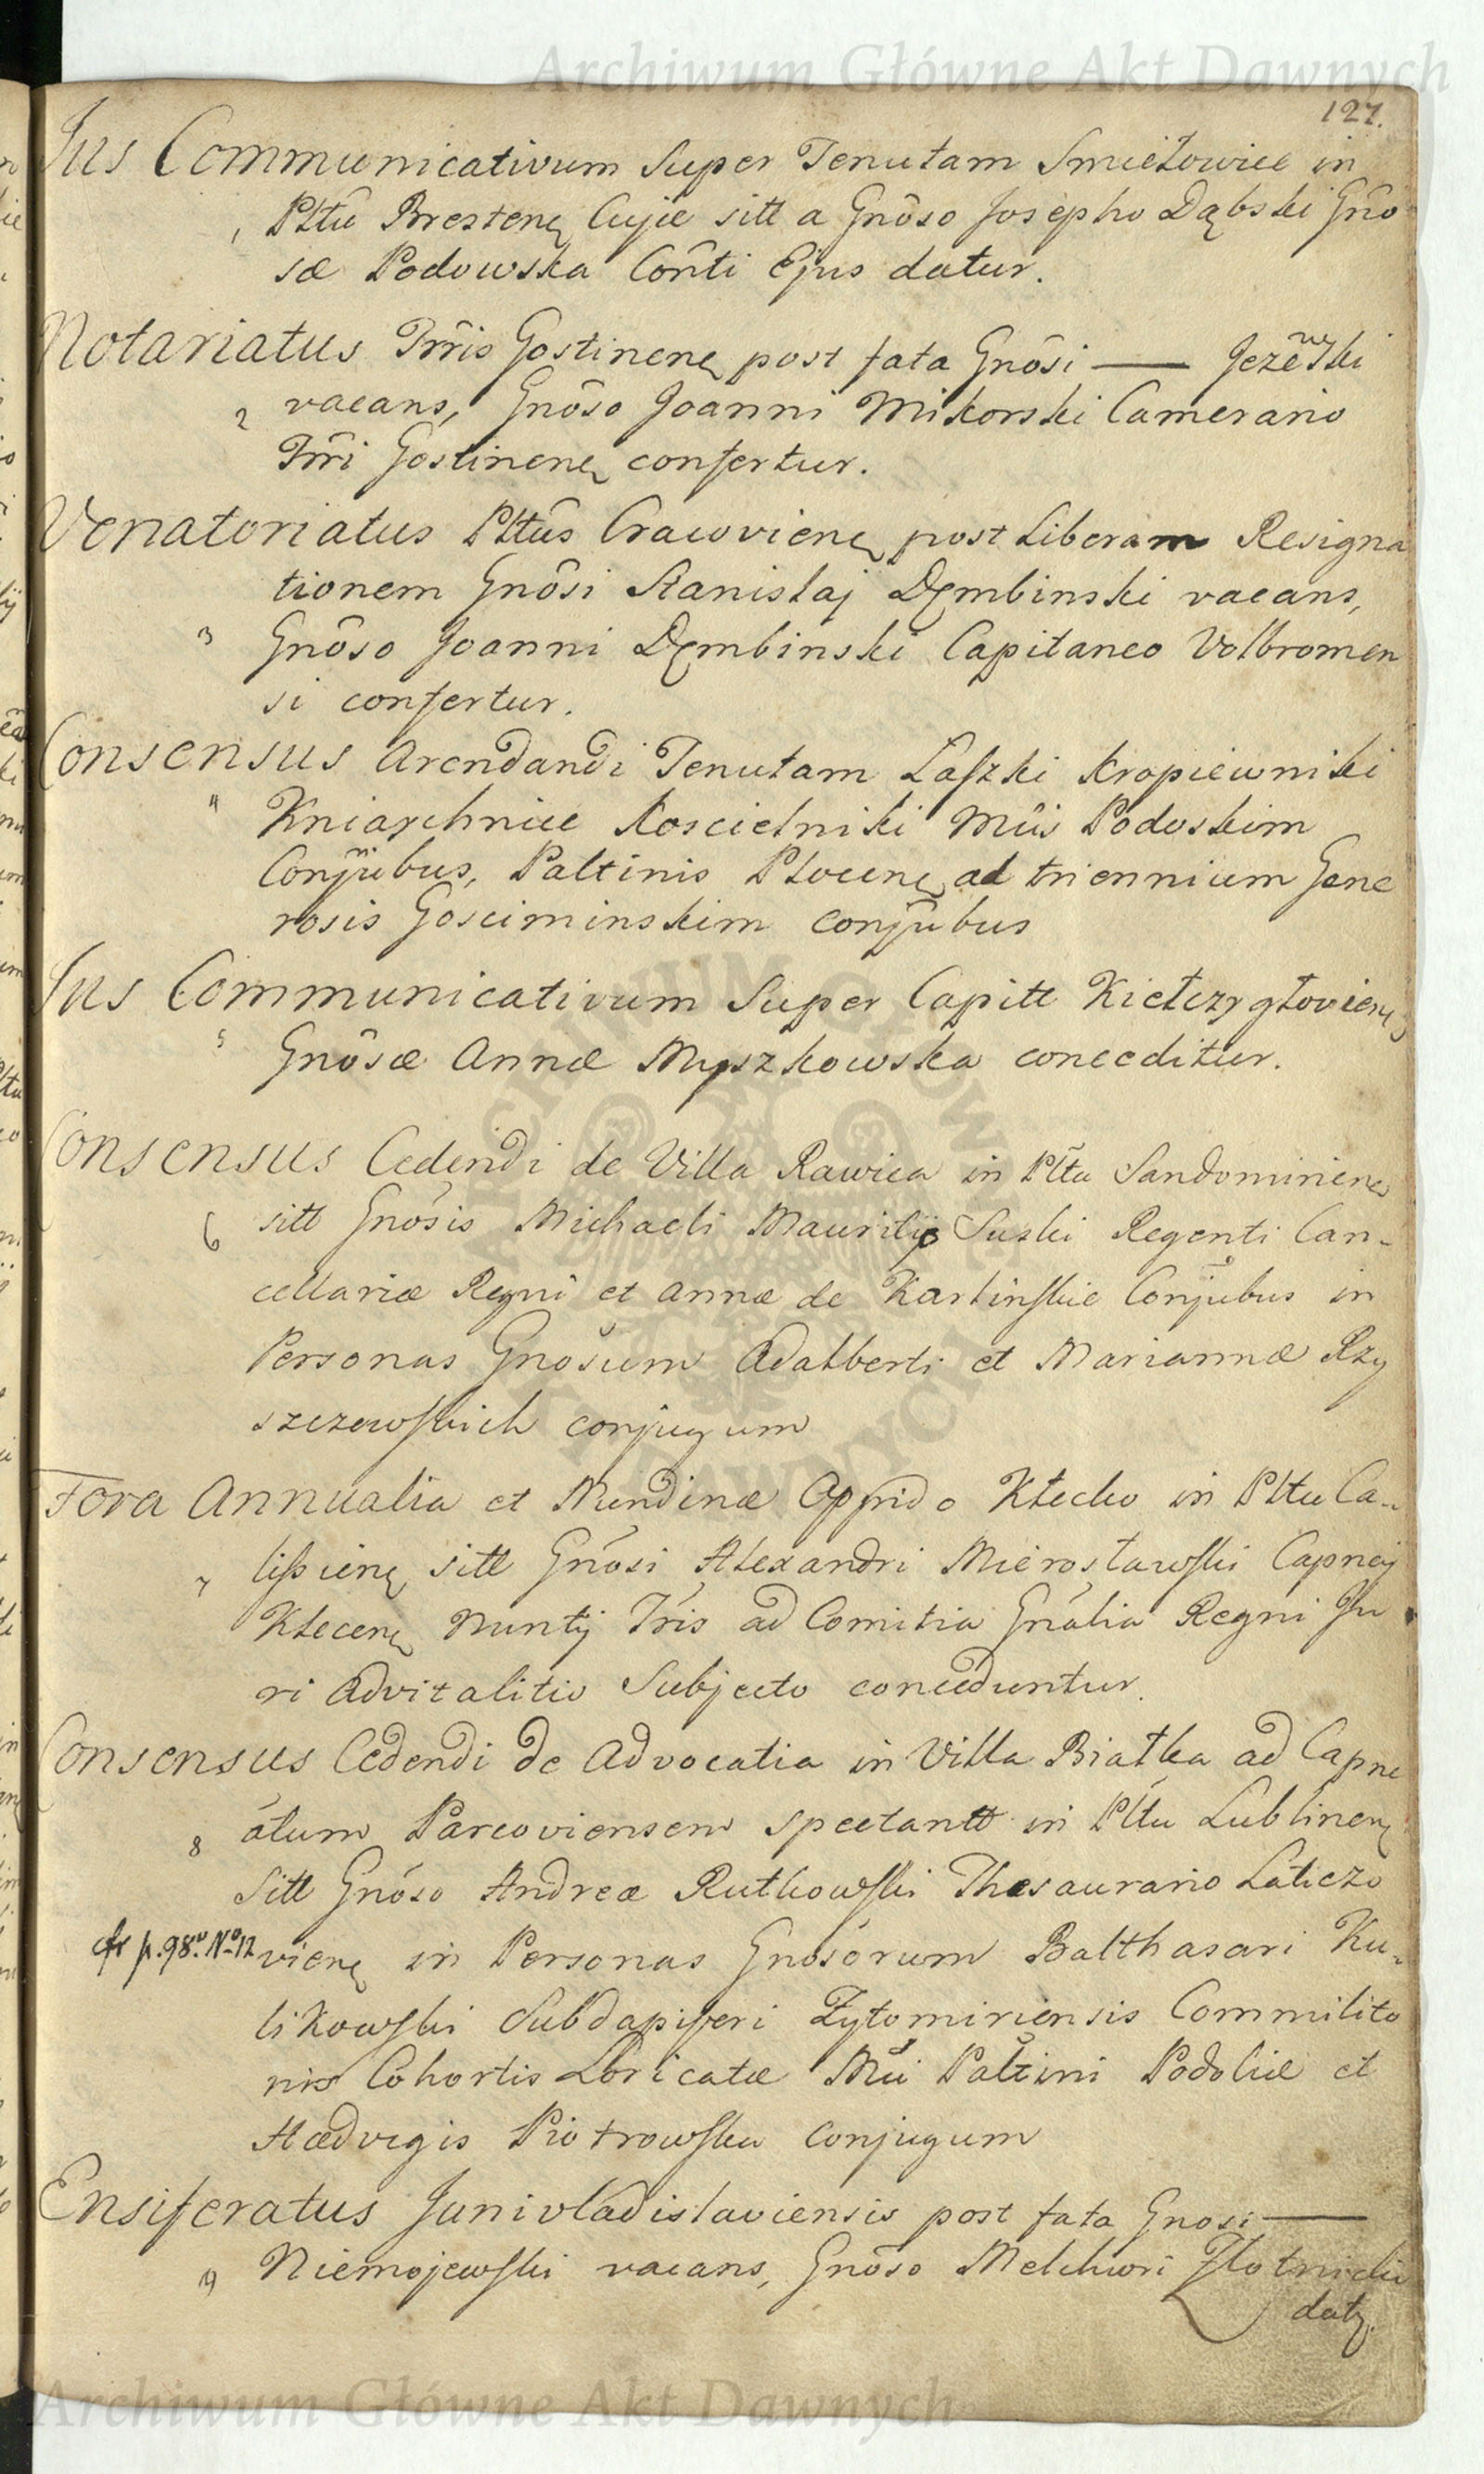 Archiwum Główne Akt Dawnych
127.
Jus Communicativum Super Tenutam Smiełowice in
1 Pltû Brestenę Cujæ sitt a Gnôso Josepho Dąbski Gnô
sæ Podowska Cônti Ejus datur.
Notariatus Trrîs Gostinenę post fata Gnôsi — Jeżewski
2 vacans, Gnôso Joanni Mikorski Camerario
Trrî Gostinenę confertur.
Venatoriatus Pltûs Cracovienę post Liberam Resigna
tionem Gnôsi Stanislaj Dęmbinski vacans,
3 Gnôso Joanni Dęmbinski Capitaneo Volbromen
si confertur.
Consensus Arendandi Tenutam Laszki Kropiewniki
4 Kniaxchnice Koscielniki Mûis Podoskim
Conjûbus, Paltinis Plocenę ad triennium Gene
rosis Gosciminskim conjûbus
Jus Communicativum Super Capitt Kiełczygłovienę
5 Gnôsæ Annæ Myszkowska conceditur.
Consensus Cedendi de Villa Rawica in Pltu Sandomirienę
6 sitt Gnôsis Michaeli Maurity Suski Regenti Can-
cellariæ Regni et Annæ de Karlinskie Conjubus in
Personas Gnôsum Adalberti et Mariannæ Rzy
szczewskich conjugum
Fora Annualia et Nundinæ Oppido Kłecko in Pltu Ca-
7 lissienę sitt Gnôsi Alexandri Mierosławski Capnej
Klecenę Nuntij Trîs ad Comitia Gnâlia Regni Ju
ri Advitalitio Subjecto conceduntur.
Consensus Cedendi de Advocatia in Villa Białka ad Capne
8 atum Parcoviensem spectantt in Pltu Lublinenę
Sitt Gnôso Andreæ Rutkowski Thesaurario Laticzo
cfr p. 98v. No 12 vienę in Personas Gnôsorum Balthasari Ku-
likowski Subdapiferi Zytomiriensis Commilito
nis Cohortis Loricatæ Mûi Paltini Podoliæ et
Hædvigis Piotrowska Conjugum
Ensiferatus Junivladislaviensis post fata Gnosi —
9 Niemojewski vacans, Gnôso Melchiori Złotnicki
datę.
Archiwum Główne Akt Dawnych